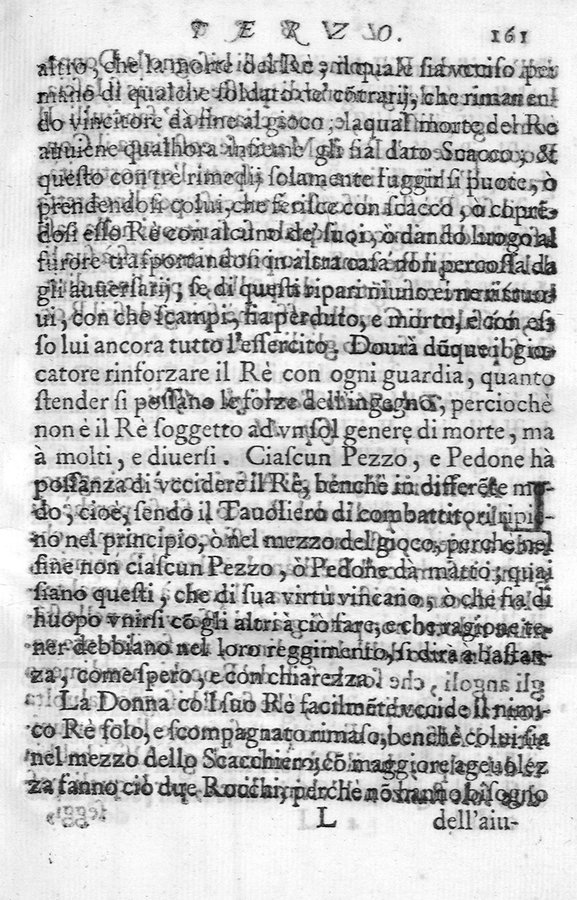 TERZO. 161
altro, che la morte del Rè; il quale sia
mano di qualche soldato de' cõtrarij, che rimanen
do vincitore dà fine al gioco; la qual morte del Rè
auuiene qualhora gli sia dato Scacco; &
questo con trè rimedij solamente fuggir si puote, ò
prendendosi colui, che ferisce con scacco, ò coprẽ-
dosi esso Rè con alcuno de' suoi, ò dando luogo al
furore trasportandosi in altra casa nõ percossa da
gli auuersarij; se di questi ripari niuno
ui, con che scampi, sia perduto, e morto, e con es
so lui ancora tutto l'essercito. Dourà dũque il gio-
catore rinforzare il Rè con ogni guardia, quanto
stender si possano le forze dell'ingegno, percioche
non è il Rè soggetto ad vn sol genere di morte, ma
à molti, e diuersi. Ciascun Pezzo, e Pedone hà
possanza di vccidere il Rè, benche in differẽte mo-
do, cioè, sendo il Tauoliero di combattitori ripi-
no nel principio, ò nel mezzo del gioco, perche nel
fine non ciascun Pezzo, ò Pedone dà matto; quai
siano questi, che di sua virtù vincano, ò che sia di
huopo vnirsi cõ gli altri à ciò fare, e che ragione te-
ner debbiano nel loro reggimento, si dirà à bastan-
za, come spero, e con chiarezza.
La Donna co'l suo Rè facilmẽte vccide il nimi-
co Rè solo, e scompagnato rimaso, benche colui sia
nel mezzo dello Scacchiero; cõ maggiore ageuolez
za fanno ciò due Rocchi, perche nõ hanno bisogno
L dell'aiu-